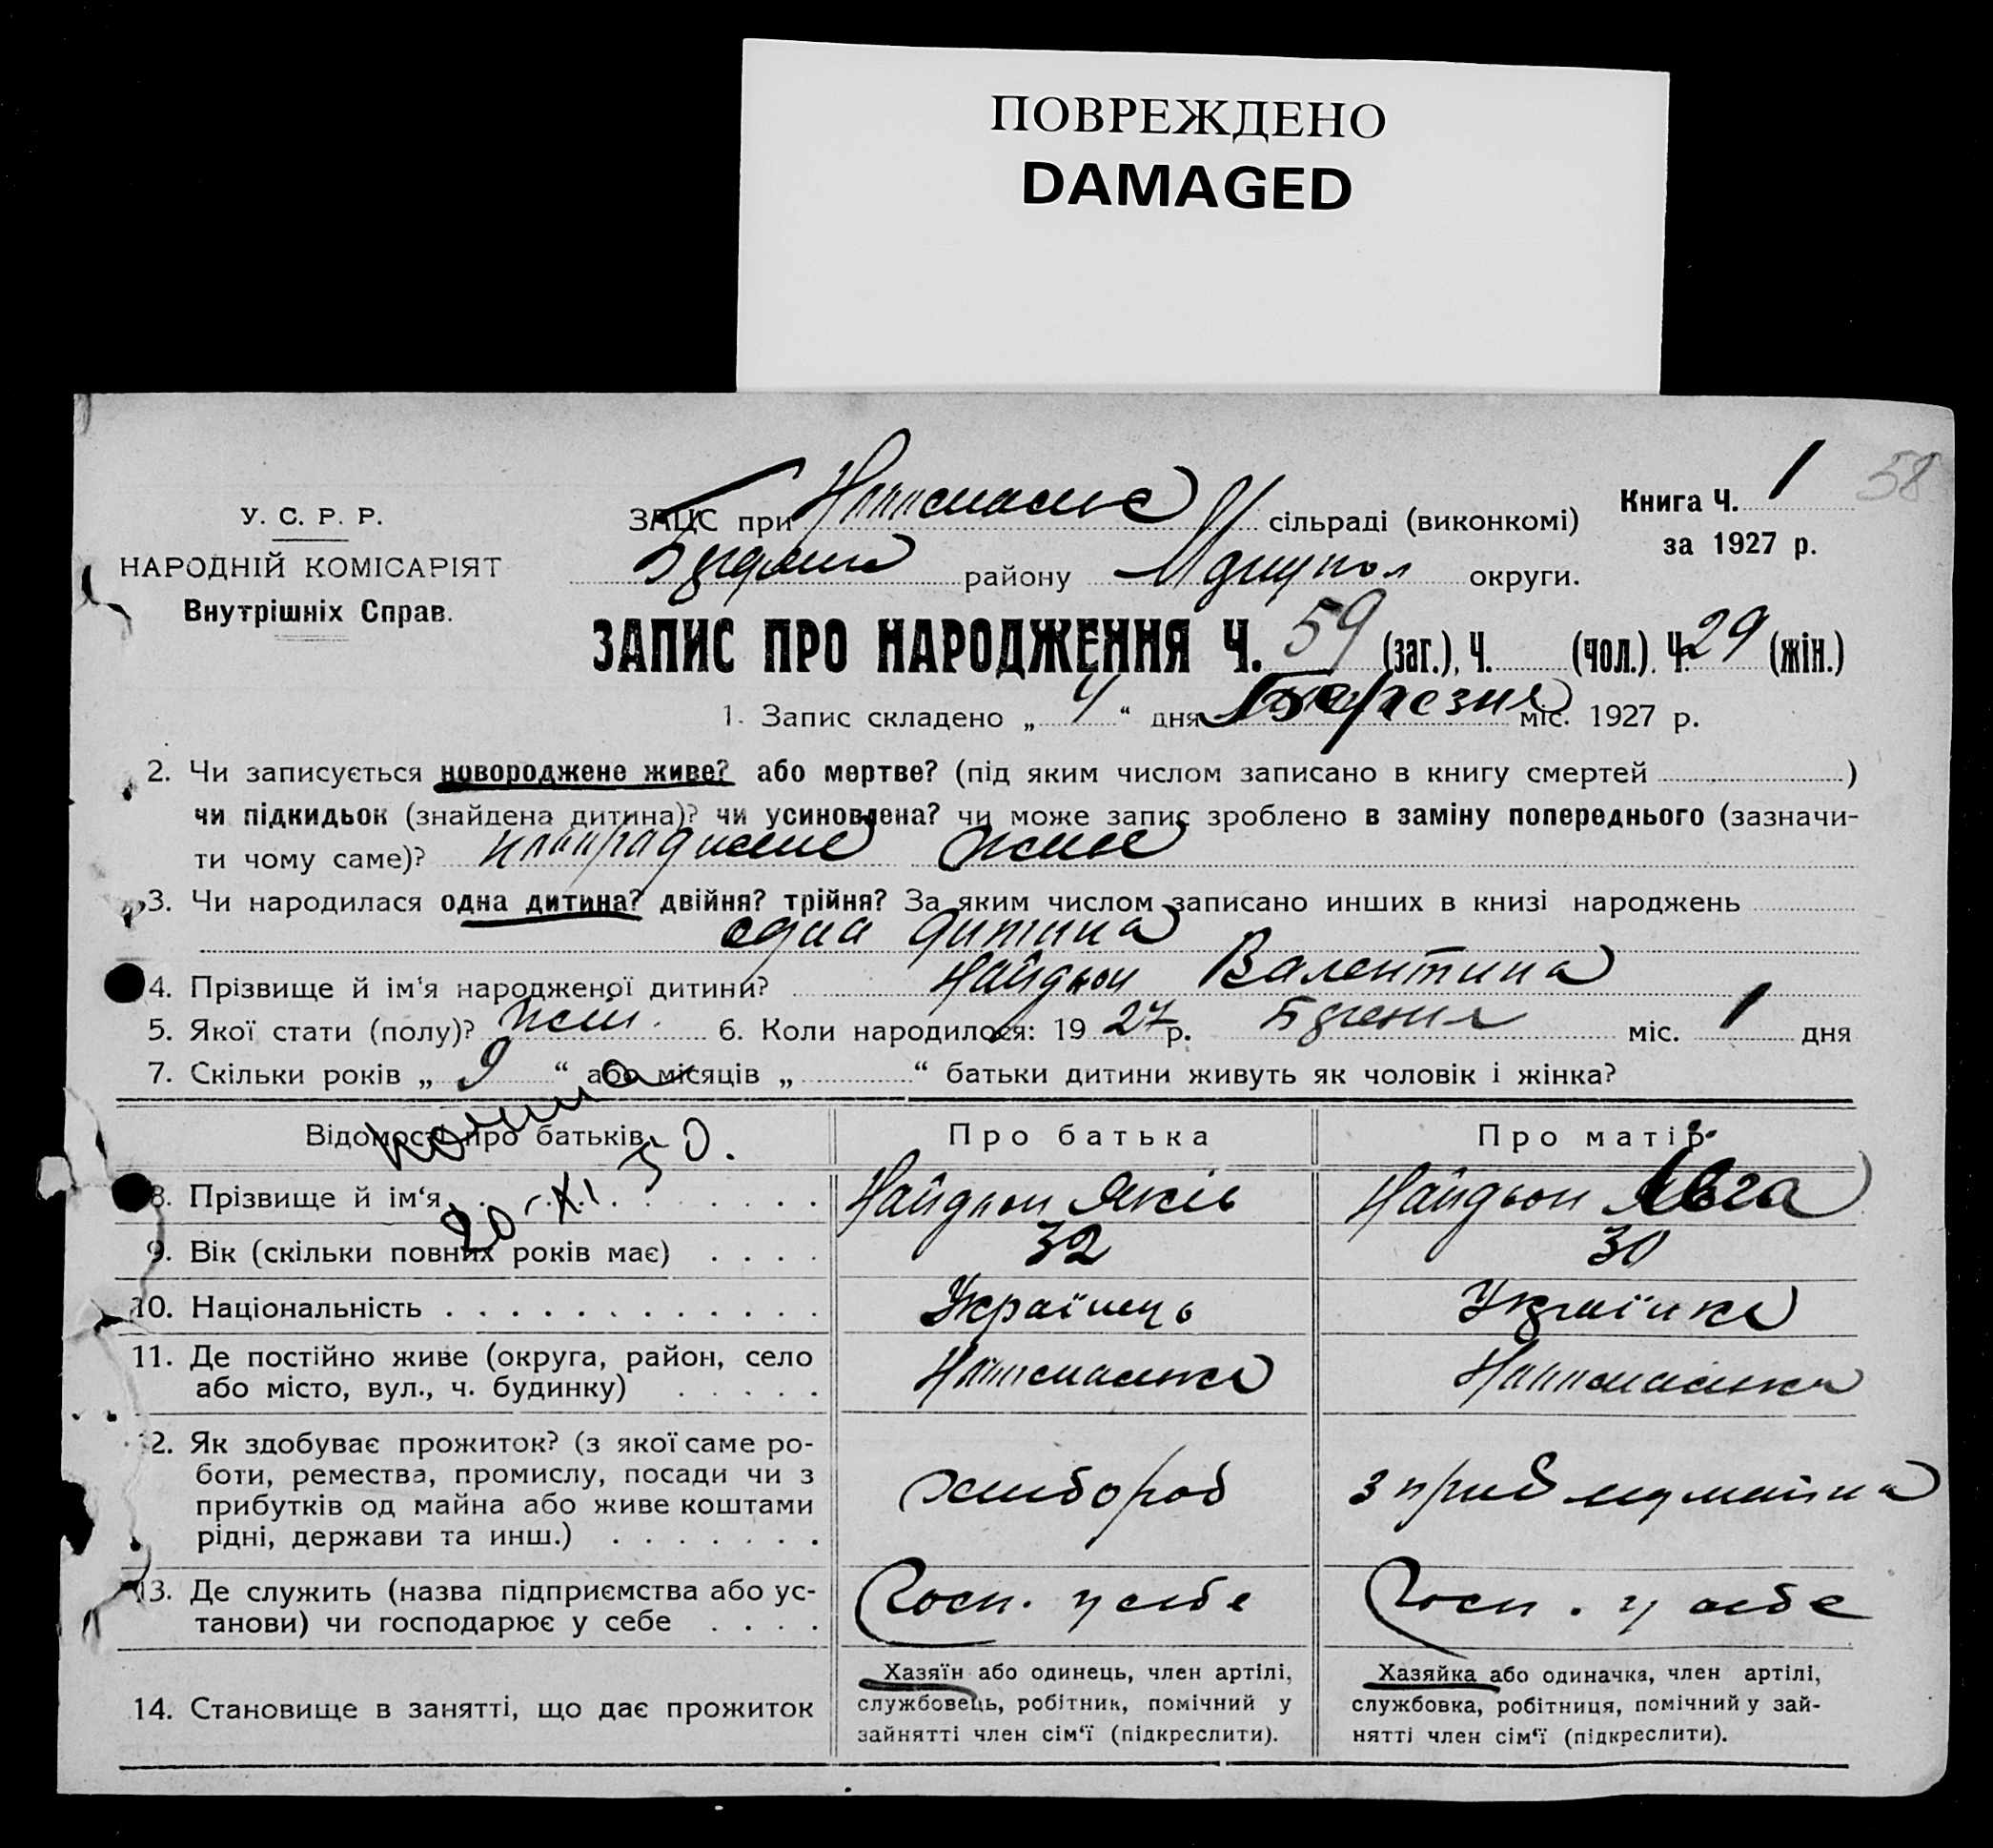 ПОВРЕЖДЕНО
DAMAGED
58
У. С. Р. Р.
НАРОДНІЙ КОМІСАРІЯТ
Внутрішніх Справ.
ЗАЦС при сільраді (виконкомі)
району округи.
Книга Ч. 1
за 1927 р.
ЗАПИС ПРО НАРОДЖЕННЯ Ч. 59 (заг.), Ч. (чол.). Ч. 29 (жін.)
1. Запис складено „ 4 “ дня Березня міс. 1927 р.
2. Чи записується новороджене живе? або мертве? (під яким числом записано в книгу смертей )
чи підкидьок (знайдена дитина)? чи усиновлена? чи може запис зроблено в заміну попереднього (зазначи-
ти чому саме)? живе
3. Чи народилася одна дитина? двійня? трійня? За яким числом записано инших в книзі народжень
одна дитина
4. Прізвище й ім‘я народженої дитини? Найдьон Валентина
5. Якої стати (полу)? жін. 6. Коли народилося: 19 27 р. міс. 1 дня
7. Скільки років „ 9 “ або місяців „ “ батьки дитини живуть як чоловік і жінка?
Відомості про батьків Про батька Про матір
копия
20-XI 50.
8. Прізвище й ім‘я Найдьон Яків Найдьон Явга
9. Вік (скільки повних років має) 32 30
10. Національність Українець Українка
11. Де постійно живе (округа, район, село
або місто, вул., ч. будинку)
12. Як здобуває прожиток? (з якої саме ро-
боти, ремества, промислу, посади чи з
прибутків од майна або живе коштами
рідні, держави та инш.) хлібороб
13. Де служить (назва підприємства або ус-
танови) чи господарює у себе Госп. у себе Госп. у себе
14. Становище в занятті, що дає прожиток
Хазяїн або одинець, член артілі,
службовець, робітник, помічний у
зайнятті член сім‘ї (підкреслити).
Хазяйка або одиначка, член артілі,
службовка, робітниця, помічний у зай-
нятті член сім‘ї (підкреслити).